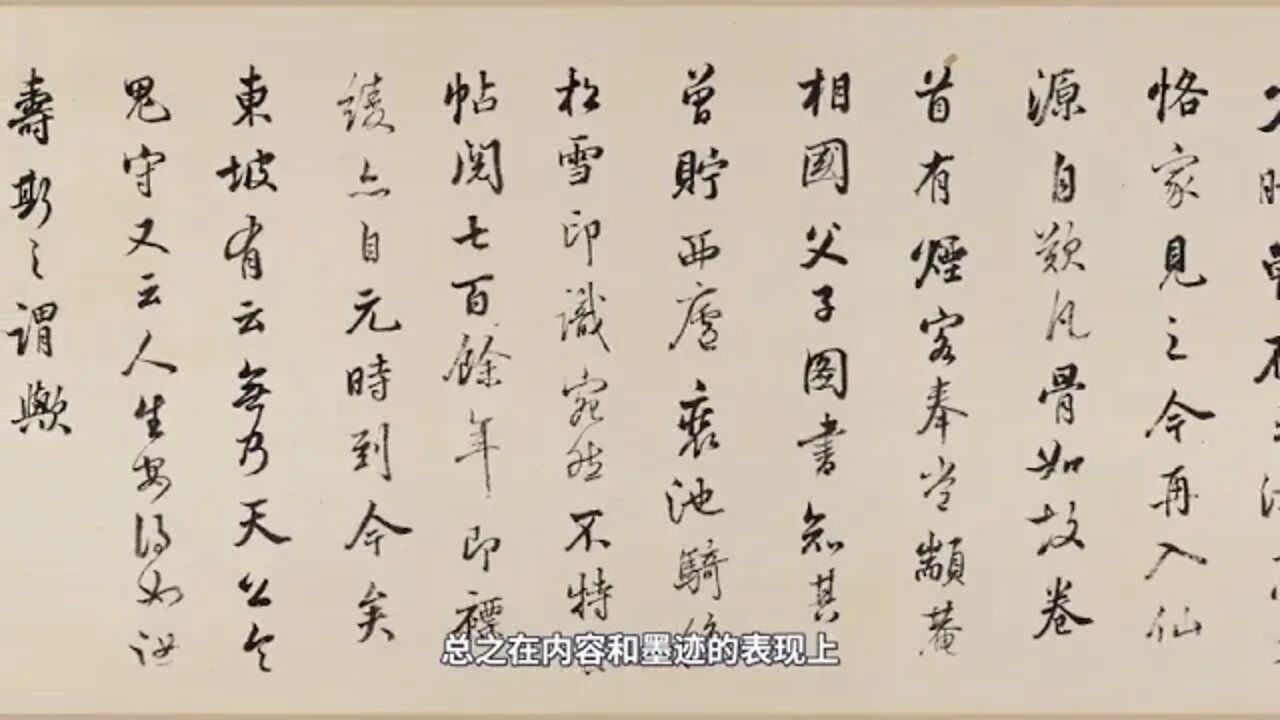 恪家見之今再入仙
源自欺凡骨如故卷
首有煙客奉常顓菴
相國父子圖書知其
曾貯西廬裹池騎
松雪印識宛然不特
帖閱七百餘年即褾
綾亦自元時到今矣
東坡有云無乃天公令
鬼守又云人生安得如
壽斯之謂歟
总之在内容和墨迹的表现上